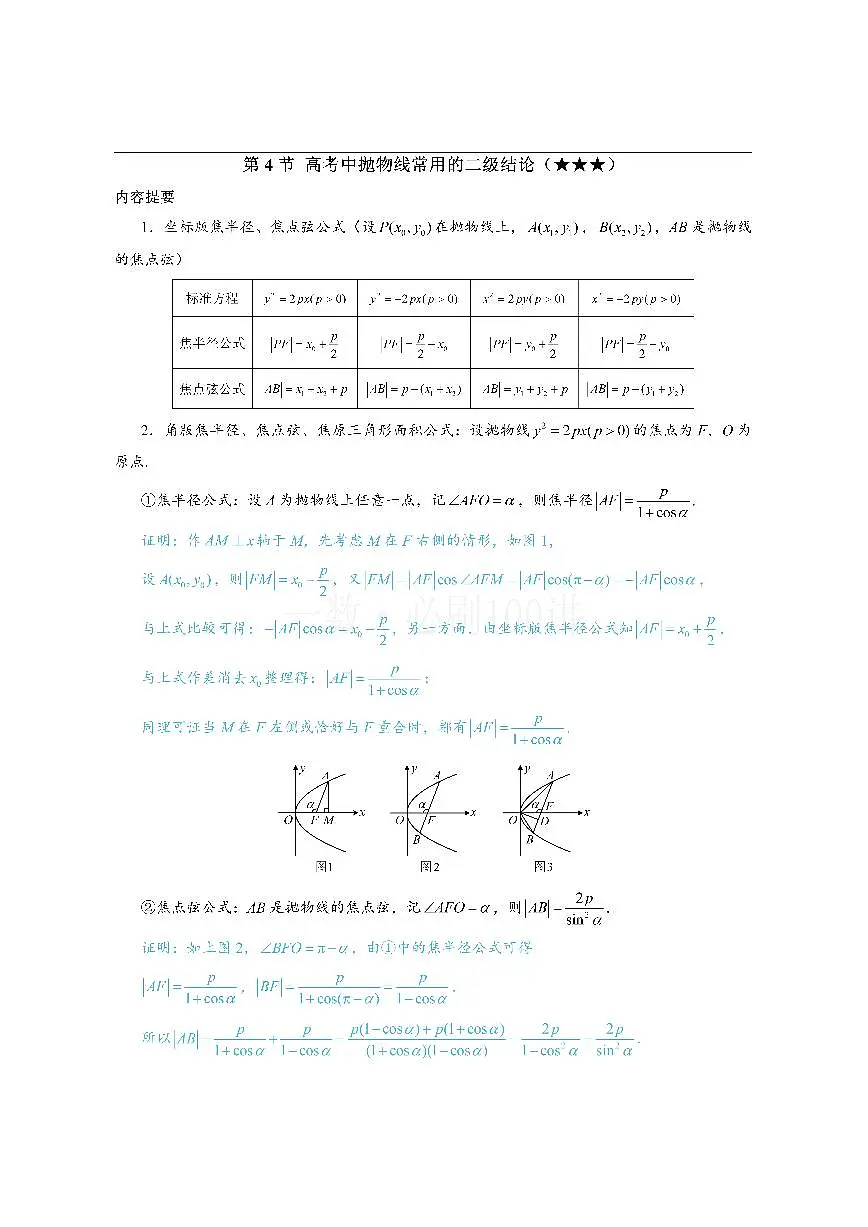 第 4 节 高考中抛物线常用的二级结论（★★★）
内容提要
1．坐标版焦半径、焦点弦公式（设P(x₀, y₀)在抛物线上，A(x₁, y₁)，B(x₂, y₂)，AB 是抛物线
的焦点弦）
标准方程 y² = 2px(p > 0) y² = −2px(p > 0) x² = 2py(p > 0) x² = −2py(p > 0)
焦半径公式 |PF| = x₀ + p/2 |PF| = p/2 − x₀ |PF| = y₀ + p/2 |PF| = p/2 − y₀
焦点弦公式 |AB| = x₁ + x₂ + p |AB| = p − (x₁ + x₂) |AB| = y₁ + y₂ + p |AB| = p − (y₁ + y₂)
2．角版焦半径、焦点弦、焦原三角形面积公式：设抛物线 y² = 2px(p > 0) 的焦点为 F，O 为
原点．
①焦半径公式：设 A 为抛物线上任意一点，记∠AFO = α，则焦半径|AF| = p/(1+cosα)．
证明：作 AM ⊥ x轴于 M，先考虑 M 在 F 右侧的情形，如图 1，
设 A(x₀, y₀)，则|FM| = x₀ − p/2，又|FM| = |AF|cos∠AFM = |AF|cos(π−α) = −|AF|cosα，
与上式比较可得：−|AF|cosα = x₀ − p/2，另一方面，由坐标版焦半径公式知|AF| = x₀ + p/2，
与上式作差消去 x₀ 整理得：|AF| = p/(1+cosα)；
同理可证当 M 在 F 左侧或恰好与 F 重合时，都有|AF| = p/(1+cosα)．
y A α O F M x
y A α O F x B
y A α F O D x B
图1 图2 图3
②焦点弦公式：AB 是抛物线的焦点弦，记∠AFO = α，则|AB| = 2p/sin²α．
证明：如上图 2，∠BFO = π−α，由①中的焦半径公式可得
|AF| = p/(1+cosα)，|BF| = p/(1+cos(π−α)) = p/(1−cosα)．
所以|AB| = p/(1+cosα) + p/(1−cosα) = (p(1−cosα)+p(1+cosα))/((1+cosα)(1−cosα)) = 2p/(1−cos²α) = 2p/sin²α．
一数·必刷100讲